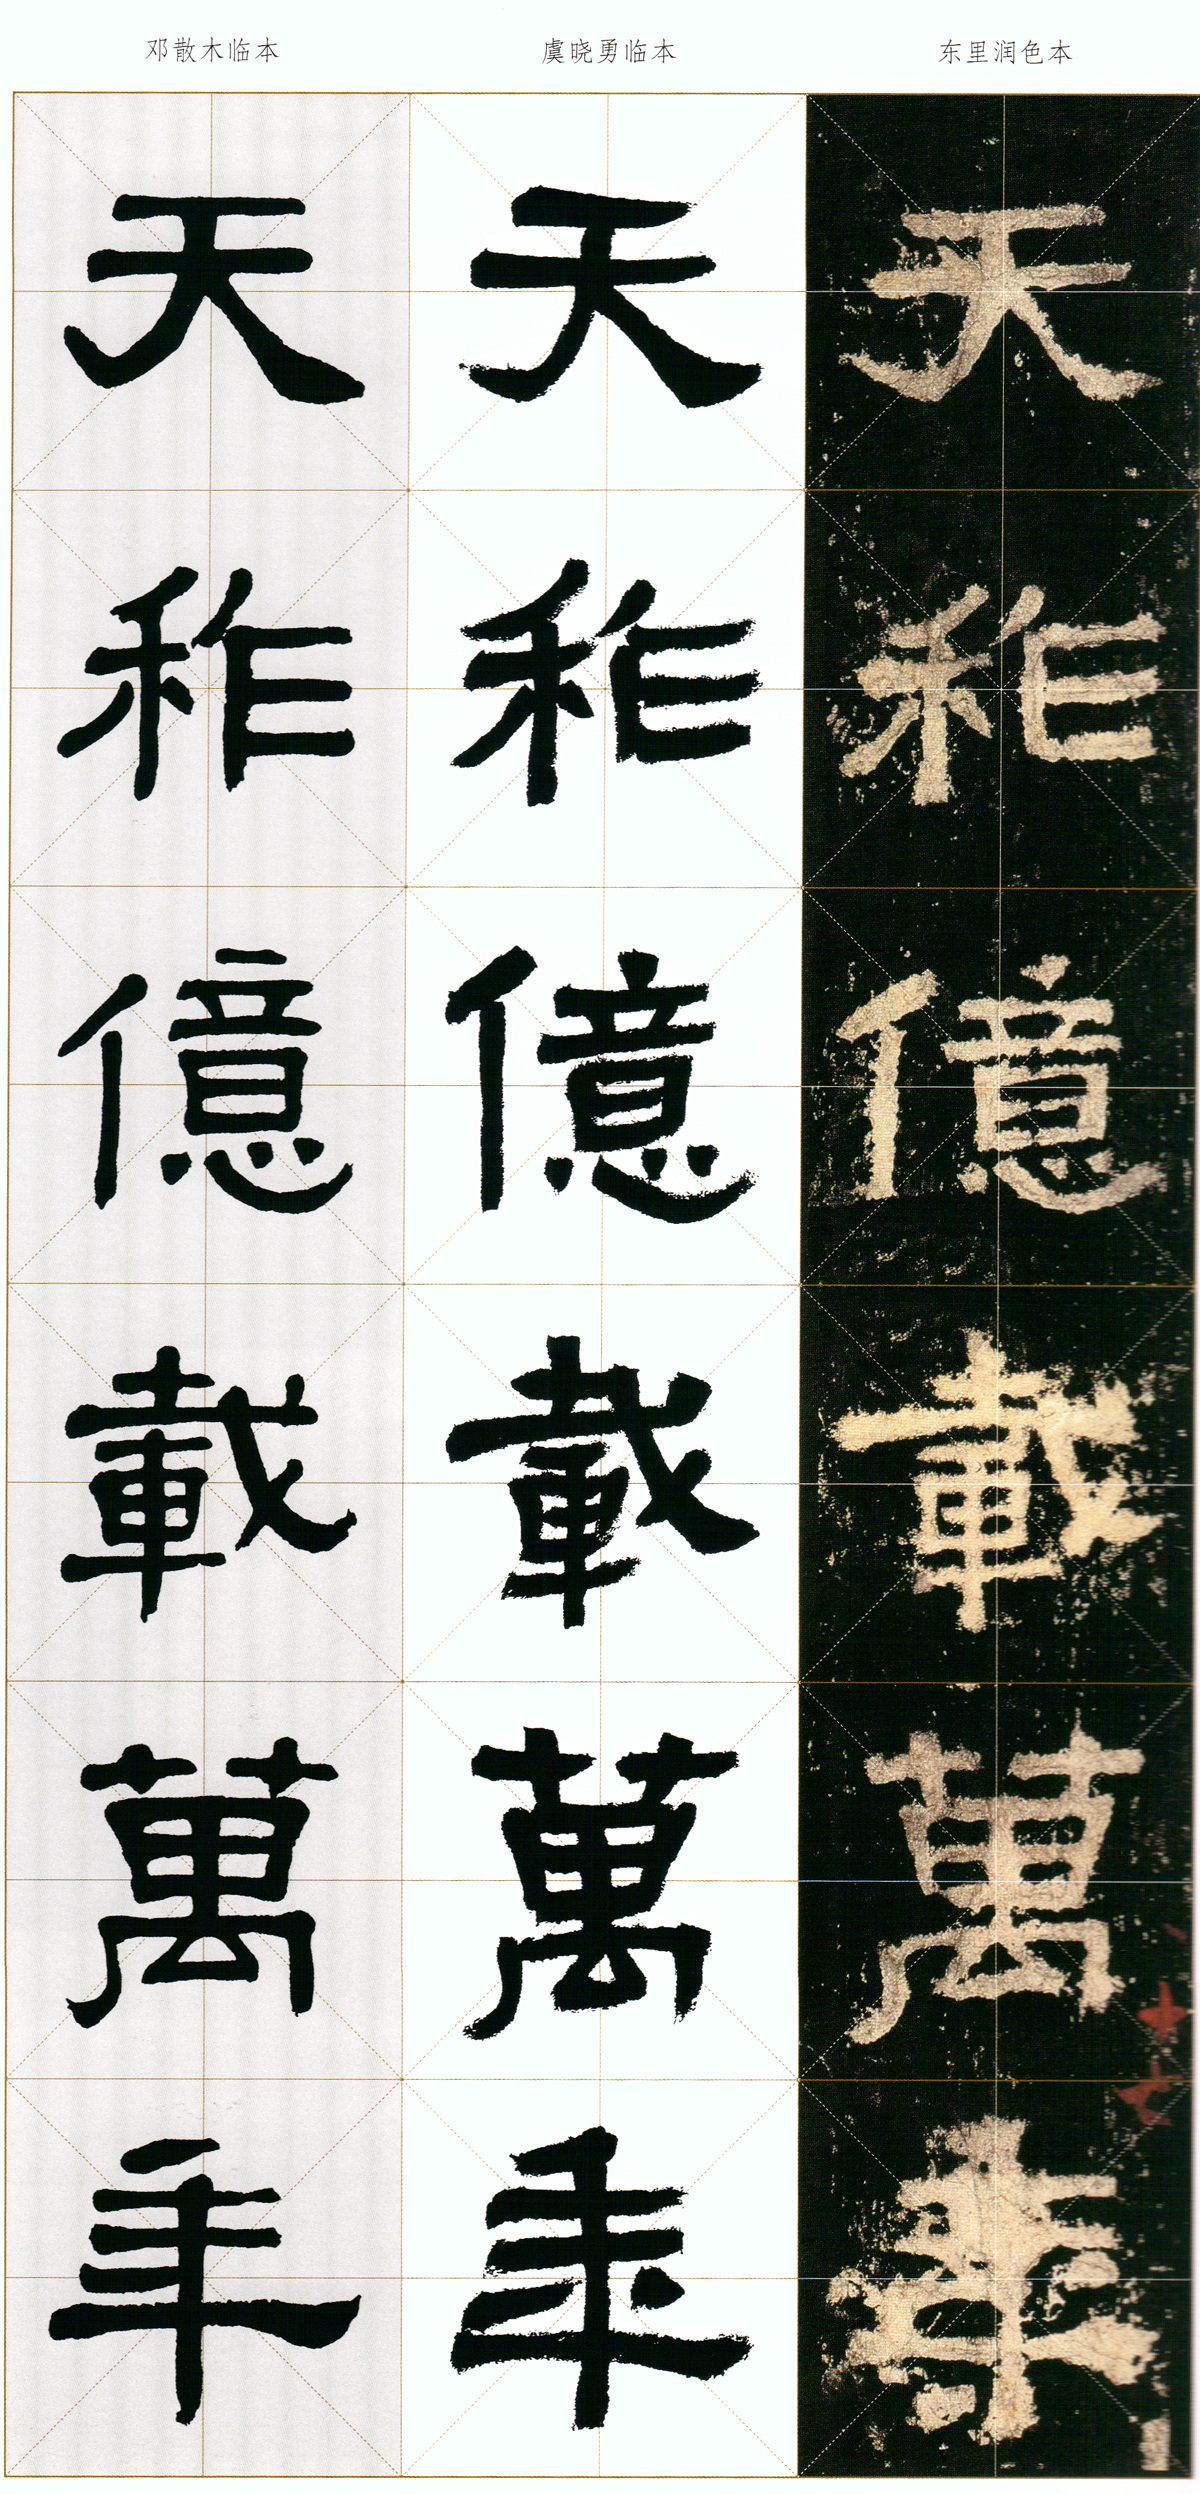 邓散木临本
虞晓勇临本
东里润色本
天秨億載萬年
天秨億載萬年
天秨億載萬年